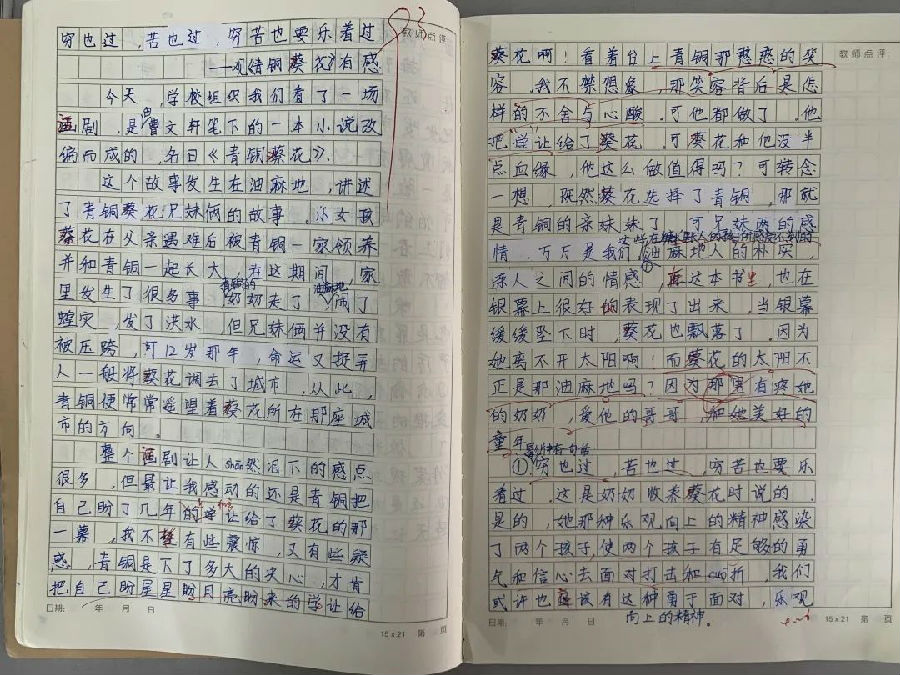 穷也过,苦也过,穷苦也要乐着过
——观《青铜葵花》有感
教师点评
今天,学校组织我们看了一场
画剧,是由曹文轩笔下的一本小说改
编而成的,名曰《青铜葵花》.
这个故事发生在油麻地,讲述
了青铜葵花兄妹俩的故事,小女孩
葵花在父亲遇难后被青铜一家领养
并和青铜一起长大,在这期间,家
里发生了很多事 奶奶走了 闹了
蝗灾,发了洪水,但兄妹俩并没有
被压跨,可12岁那年,命运又捉弄
人一般将葵花调去了城市.从此,
青铜便常常遥望着葵花所在那座城
市的方向.
整个画剧让人shan然泪下的感点
很多,但最让我感动的还是青铜把
自己盼了几年的学让给了葵花的那
一幕,我不禁有些震惊,又有些疑
惑,青铜是下了多大的决心,才肯
把自己盼星星盼月亮盼来的学让给
日期: 年 月 日
15×21 第 页
教师点评
葵花啊!看着台上青铜那憨憨的笑
容,我不禁想象,那笑容背后是怎
样的不舍与心酸.可他都做了.他
把学让给了葵花.可葵花和他没半
点血缘,他这么做值得吗?可转念
一想,既然葵花选择了青铜,那就
是青铜的亲妹妹了.可兄妹俩的感
情,万万是我们油麻地人的朴实,
亲人之间的情感,在这本书里,也在
银幕上很好的表现了出来.当银幕
缓缓坠下时,葵花也飘落了.因为
她离不开太阳啊!而葵花的太阳不
正是那油麻地吗?因为那里有疼她
的奶奶,爱他的哥哥,和她美好的
童年.
①穷也过,苦也过,穷苦也要乐
着过.这是奶奶收养葵花时说的.
是的,她那种乐观向上的精神感染
了两个孩子,使两个孩子有足够的勇
气和信心去面对打击和cuo折,我们
或许也应该有这种勇于面对,乐观
向上的精神.
日期: 年 月 日
15×21 第 页